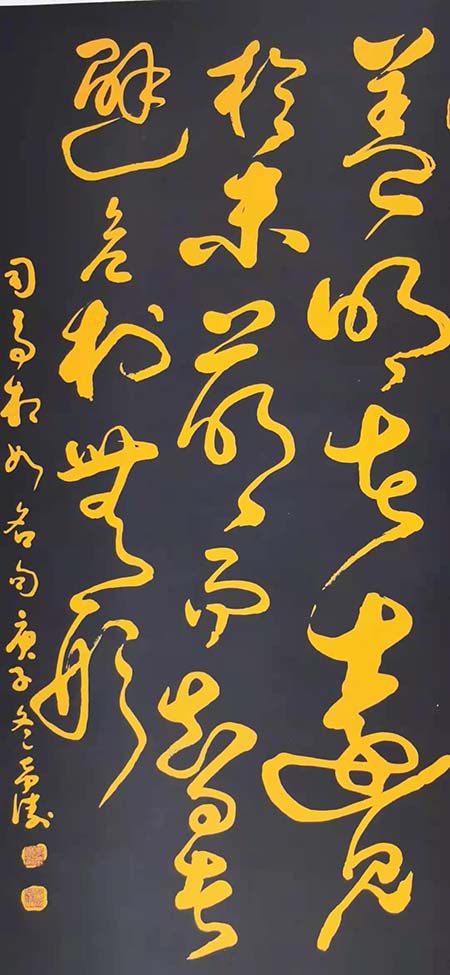 盖明者遠見
於未萌而智者
避危於無形
司馬相如名句庚子冬